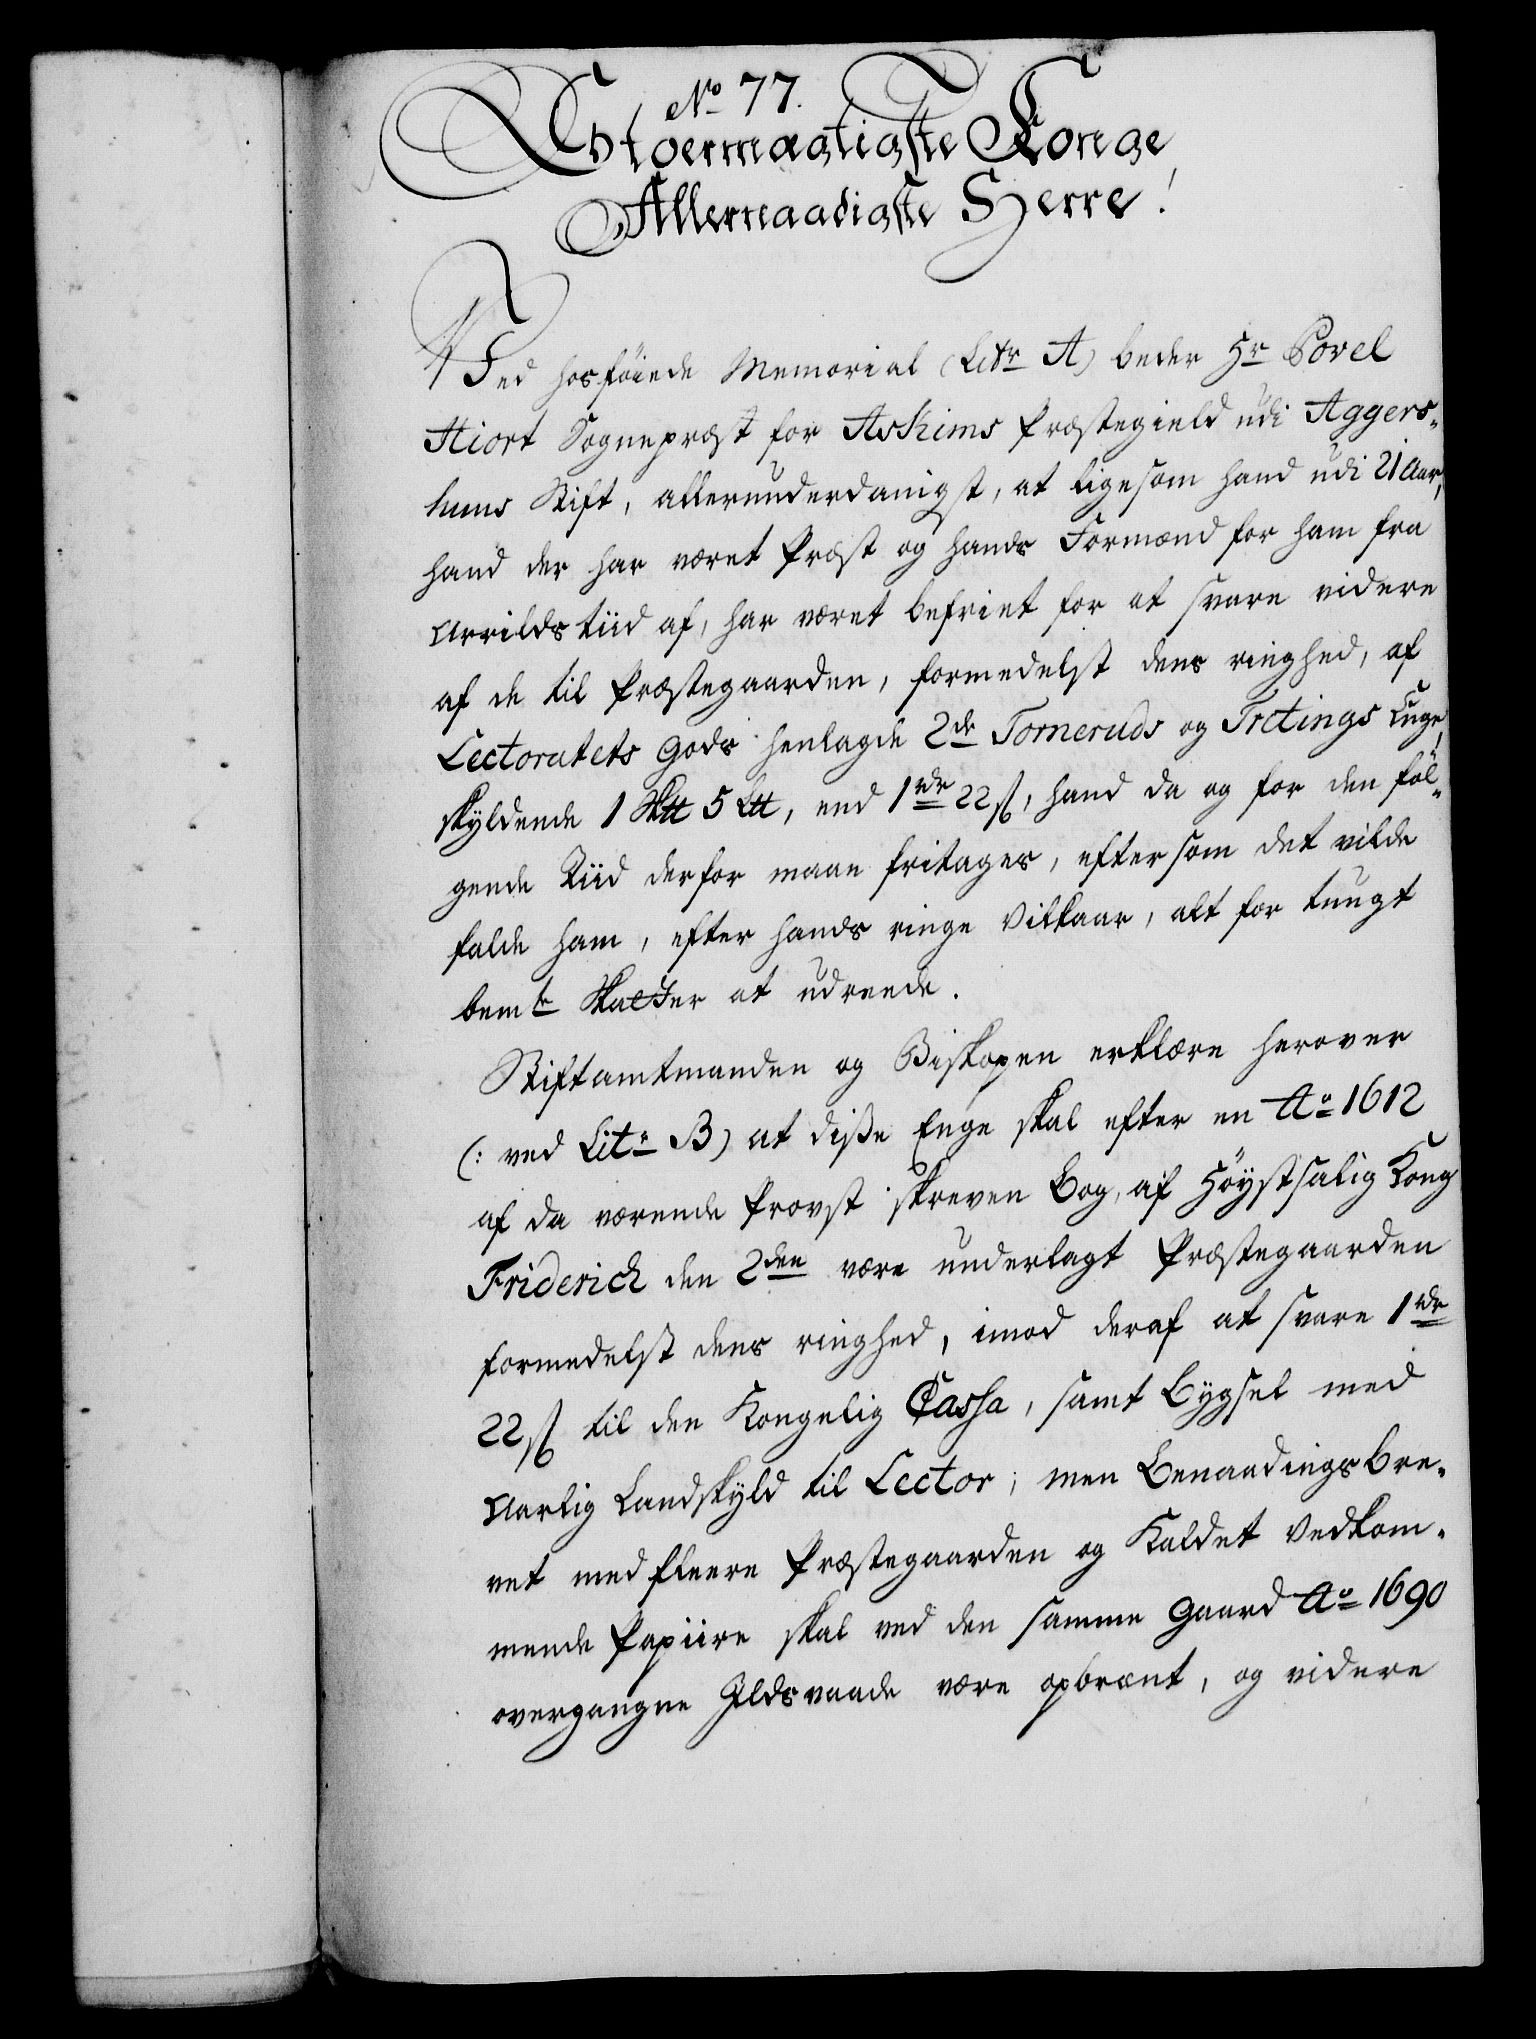 No 77.
Stormægtigste Konge
Allernaadigste Herre!
Ved hosføiede Memorial (Litr A) beder Hr Povel
Hiort Sognepræst for Askims Præstegield udi Aggers-
huus Stift, allerunderdanigst, at ligesom hand udi 21 Aar,
hand der har været Præst og hands Formænd for ham fra
Arrilds tiid af, har været befriet for at svare videre
af de til Præstegaarden, formedelst dens ringhed, af
Lectoratets Gods henlagde 2de Torneruds og Tretings Enge,
skyldende 1 Sktt 5 Ltt, end 1 rdr 22 ß, hand da og for den föl-
gende Tiid derfor maae fritages, eftersom det vilde
falde ham, efter hands ringe Vilkaar, alt for tungt
bemte Skatter at udreede.
Stiftamtmanden og Biskopen erklære herover
(: ved Litr B) at diße Enge skal efter en Ao 1612
af da værende Provst skreven Bog, af Höystsalig Kong
Friderich den 2den være underlagt Præstegaarden
formedelst dens ringhed, imod deraf at svare 1 rdr
22 ß til den Kongelig Cassa, samt Bygsel med
Aarlig Landskyld til Lector; men Benaadingsbre-
vet med fleere Præstegaarden og Kaldet Vedkom-
mende Papiire skal ved den samme Gaard Ao 1690
overgangne Ildsvaade være opbrænt, og videre